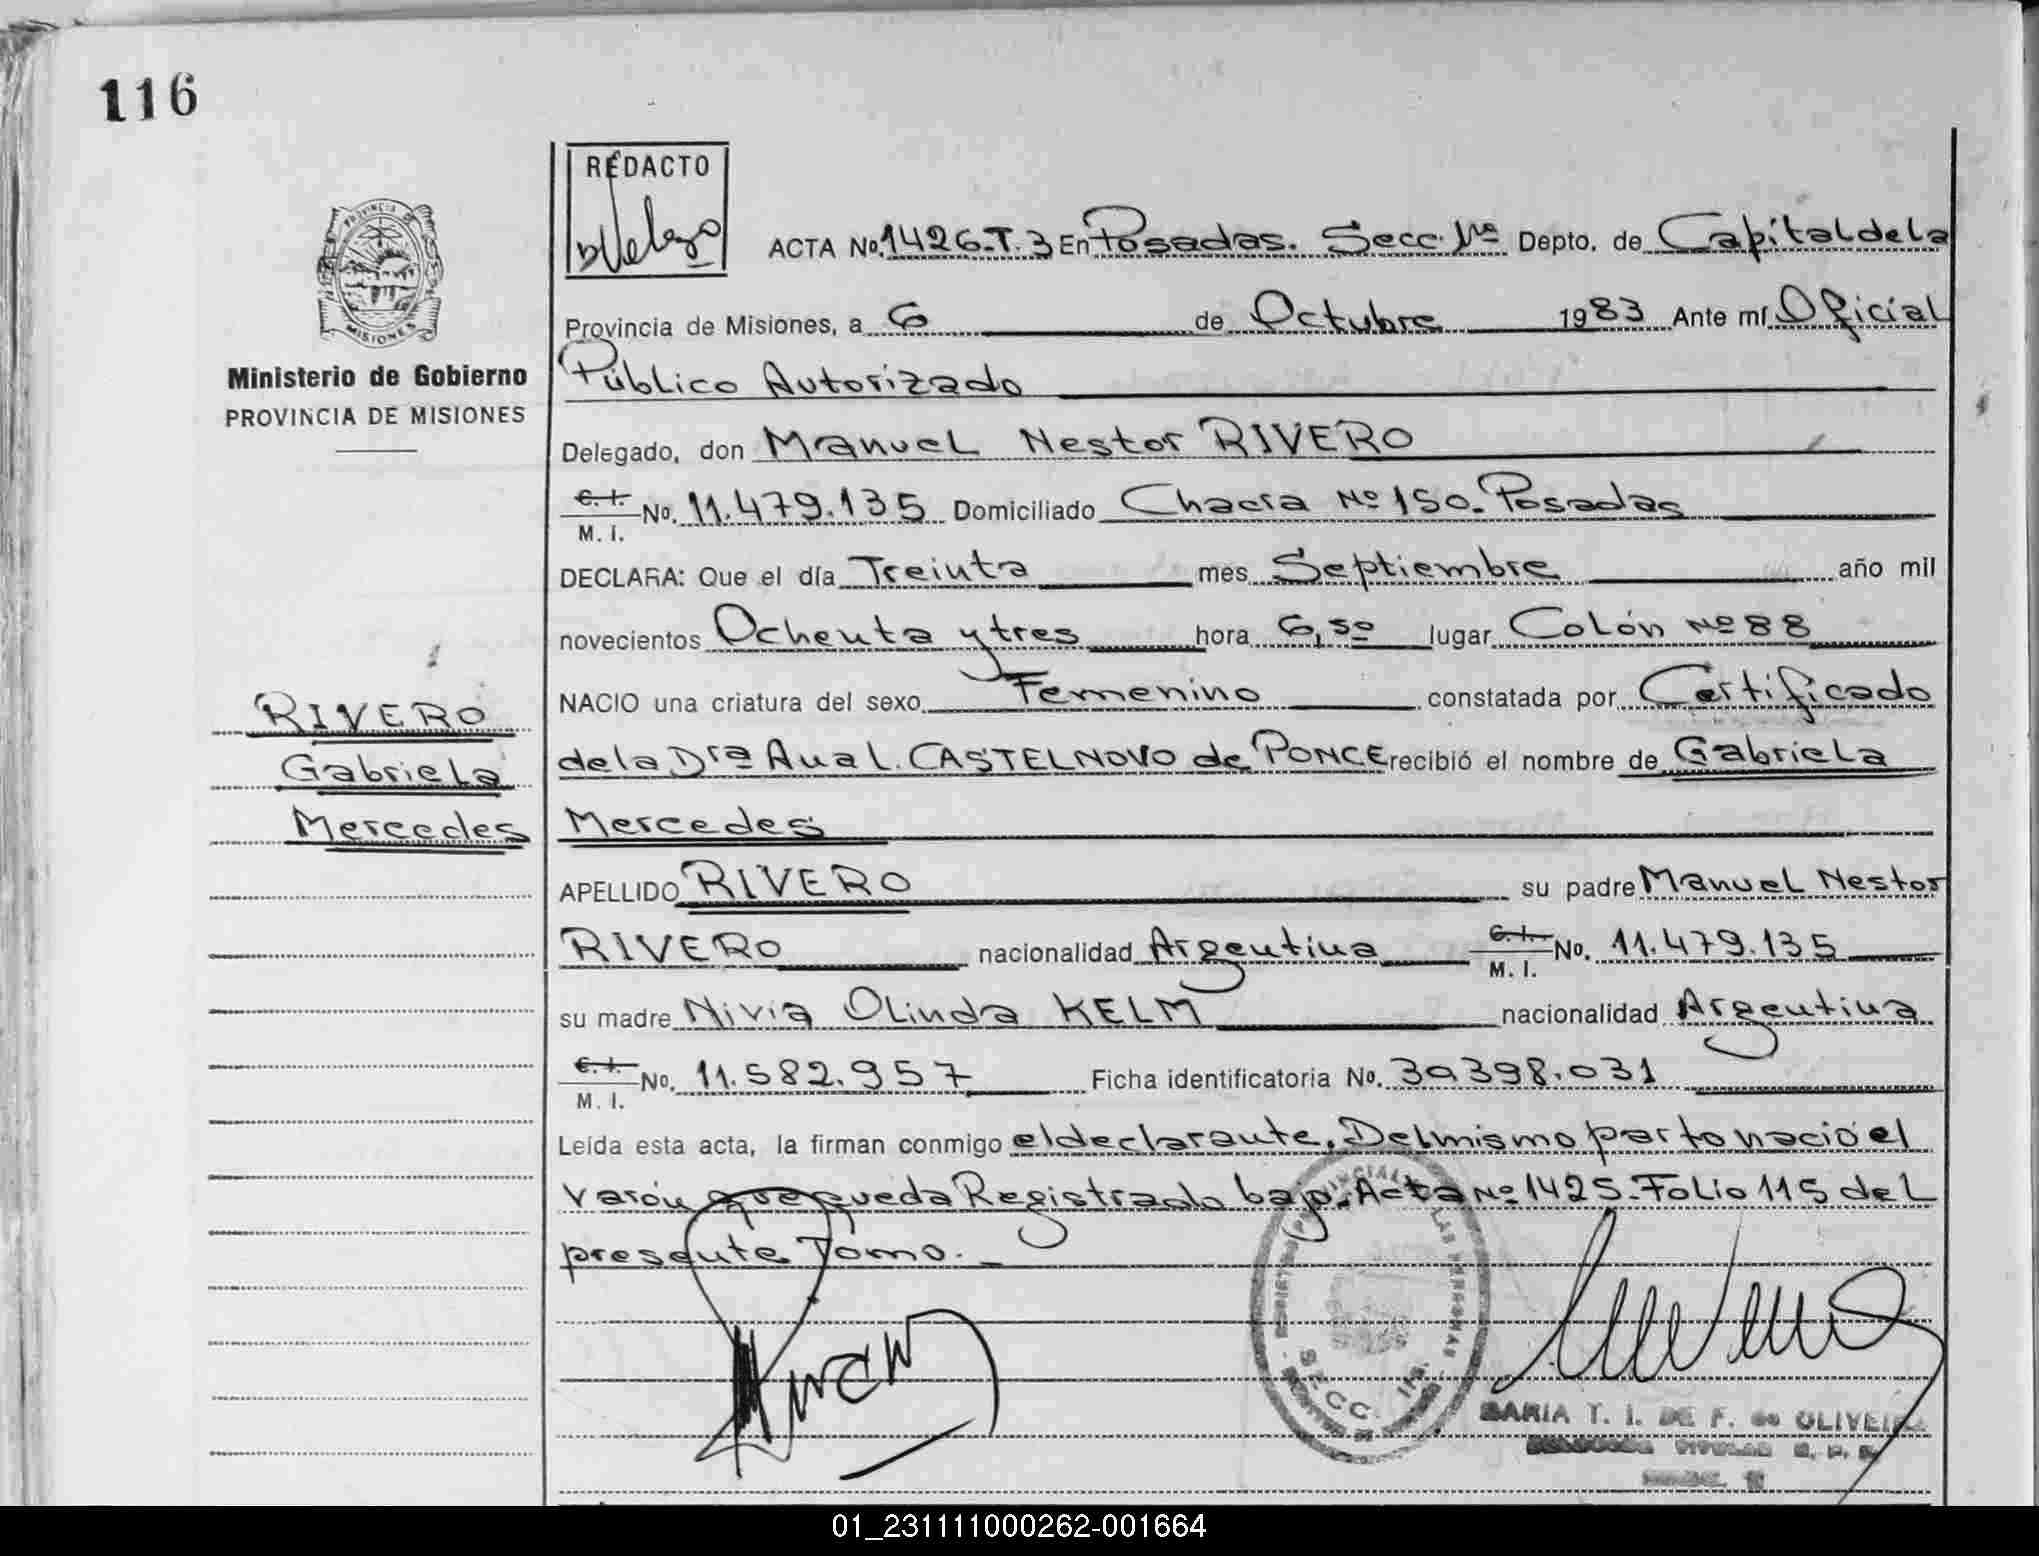 116
REDACTO
ACTA No. 1426-T.3 En Posadas. Secc. 1ra Depto. de Capital de la
Provincia de Misiones, a 6 de Octubre 1983 Ante mí Oficial
Ministerio de Gobierno
PROVINCIA DE MISIONES
Público Autorizado
Delegado, don Manuel Nestor RIVERO
C. I.
M. I. No. 11.479.135 Domiciliado Chacra Nº 150. Posadas
DECLARA: Que el día Treinta mes Septiembre año mil
novecientos Ochenta y tres hora 6,50 lugar Colón Nº 88
NACIO una criatura del sexo Femenino constatada por Certificado
RIVERO
Gabriela
Mercedes
de la Dra Ana L. CASTELNOVO de PONCE recibió el nombre de Gabriela
Mercedes
APELLIDO RIVERO su padre Manuel Nestor
RIVERO nacionalidad Argentina C. I.
M. I. No. 11.479.135
su madre Nivia Olinda KELM nacionalidad Argentina
C. I.
M. I. No. 11.582.957 Ficha identificatoria No. 30398.031
Leída esta acta, la firman conmigo el declarante. Del mismo parto nació el
varón que queda Registrado bajo Acta Nº 1425. Folio 115 del
presente Tomo.
SECC. 1ra.
MARIA T. I. DE F. de OLIVEIRA
01_231111000262-001664